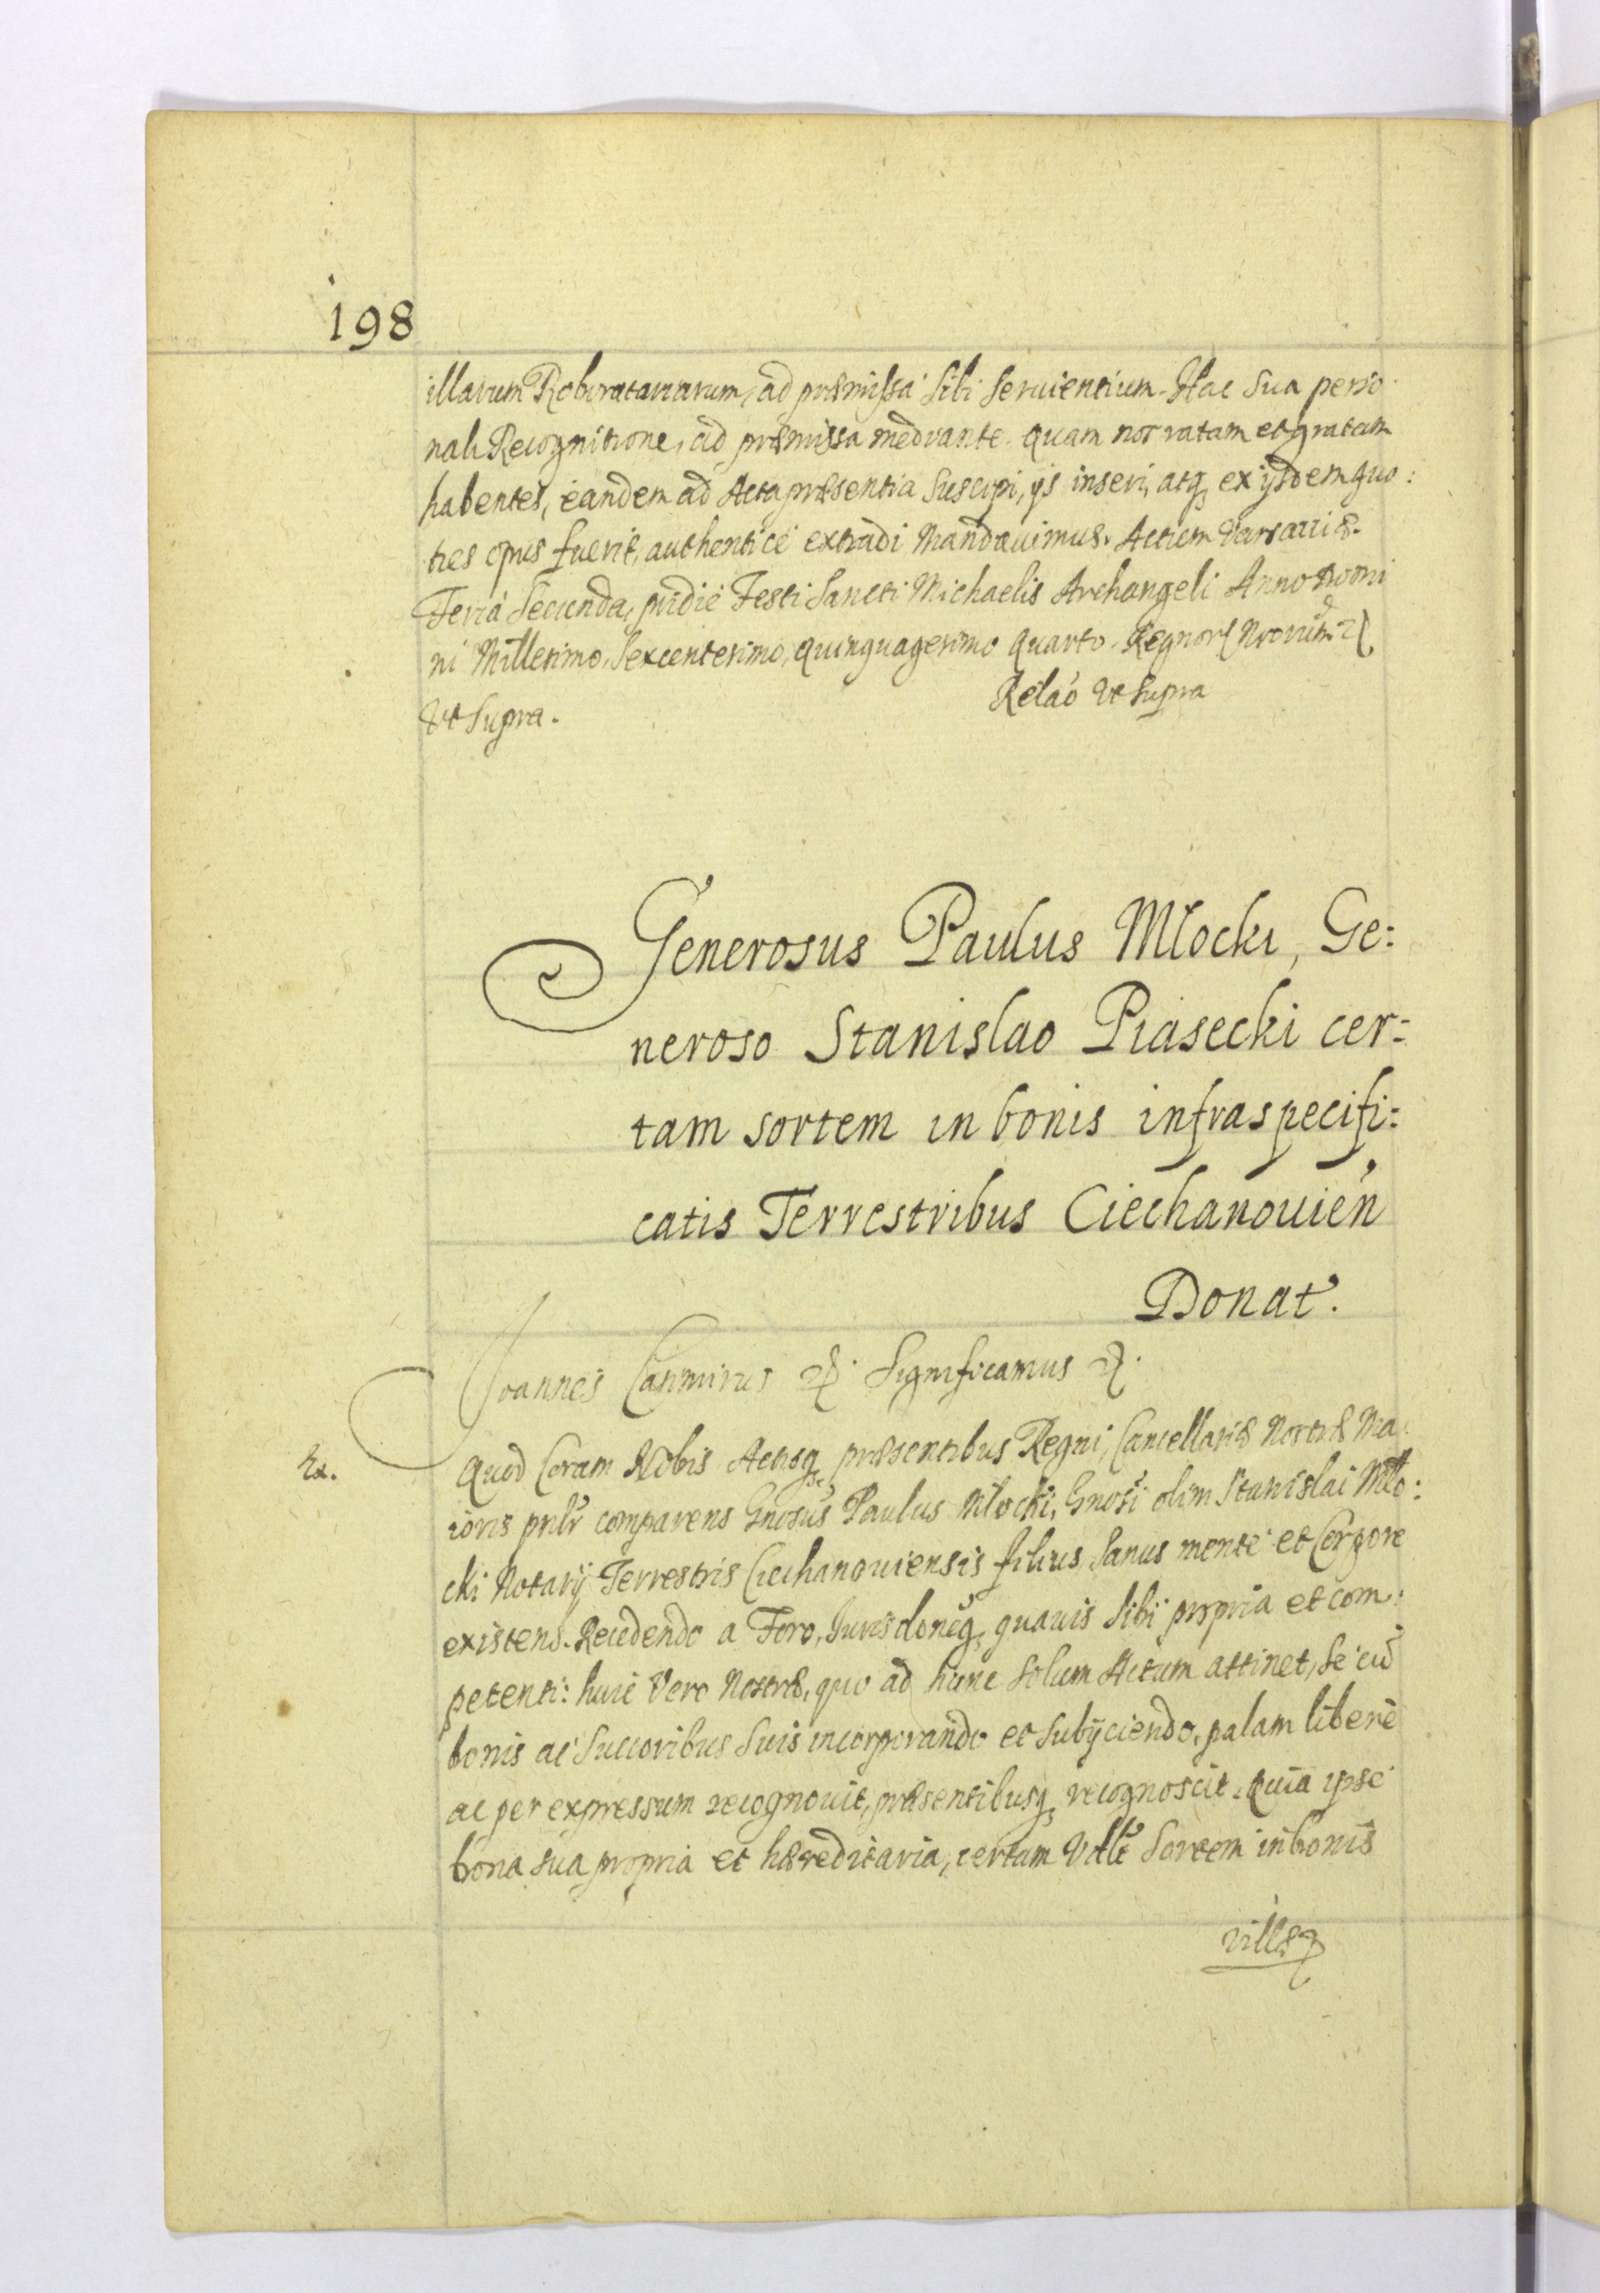 198
illarum Roboratariarum, ad præmissa sibi seruientium. Hac sua perso
nali Recognitione, ad præmissa mediante. Quam nos ratam et gratam
habentes, eandem ad Acta præsentia suscipi, ijs inseri, atq ex ijsdem quo:
ties opus fuerit, authentice extradi Mandauimus. Actum Varsauiæ.
Feria Secunda, pridie Festi Sancti Michaelis Archangeli Anno Domi
ni Millesimo, Sexcentesimo, Quinquagesimo Quarto. Regnor Nrorum
Vt Supra.
Relaō Vt Supra
Generosus Paulus Mlocki, Ge:
neroso Stanislao Piasecki cer:
tam sortem in bonis infraspecifi:
catis Terrestribus Ciechanouień
Donat.
Joannes Casimirus Significamus
Ex.
Quod Coram Nobis Actisq præsentibus Regni, Cancellariæ Nostræ Ma
ioris pnlr comparens Gnosus Paulus Mlocki, Gnosi olim Stanislai Mło:
cki Notarij Terrestris Ciechanouiensis filius Sanus mente et Corpore
existens. Recedendo a Foro, Jurisdoneq quauis sibi propria et com:
petenti: huic Vero Nostræ, quo ad hunc solum Actum attinet, se cū
bonis ac Succoribus Suis incorporando et subijciendo, palam libere
ac per expressum recognouit, præsentibusq recognoscit. Quia ipse
bona sua propria et hæreditaria, certam Vdlt Sortem in bonis
villæ